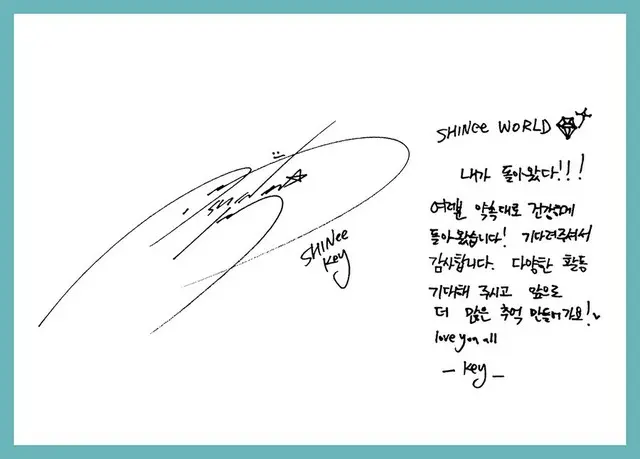 SHINee
Key
SHINee WORLD
내가 돌아왔다!!!
여러분 약속대로 건강하게
돌아왔습니다! 기다려주셔서
감사합니다. 다양한 활동
기대해 주시고 앞으로
더 많은 추억 만들어가요!~
love you all
- Key -